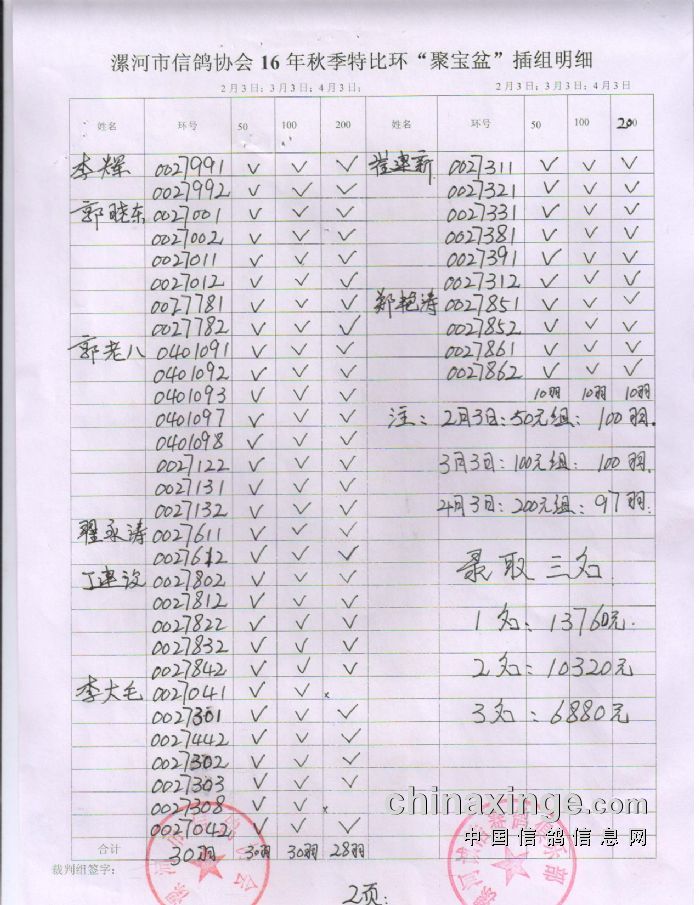 漯河市信鸽协会16年秋季特比环“聚宝盆”插组明细
2月3日;3月3日;4月3日; 2月3日;3月3日;4月3日
姓名 环号 50 100 200 姓名 环号 50 100 200
李辉 0027991 ✓ ✓ ✓ 崔建新 0027311 ✓ ✓ ✓
0027992 ✓ ✓ ✓ 0027321 ✓ ✓ ✓
郭晓东 0027001 ✓ ✓ ✓ 0027331 ✓ ✓ ✓
0027002 ✓ ✓ ✓ 0027381 ✓ ✓ ✓
0027011 ✓ ✓ ✓ 0027391 ✓ ✓ ✓
0027012 ✓ ✓ ✓ 0027312 ✓ ✓ ✓
0027781 ✓ ✓ ✓ 郑艳涛 0027851 ✓ ✓ ✓
0027782 ✓ ✓ ✓ 0027852 ✓ ✓ ✓
郭老八 0401091 ✓ ✓ ✓ 0027861 ✓ ✓ ✓
0401092 ✓ ✓ ✓ 0027862 ✓ ✓ ✓
0401093 ✓ ✓ ✓ 10羽 10羽 10羽
0401097 ✓ ✓ ✓ 注：2月3日：50元组：100羽.
0401098 ✓ ✓ ✓
0027122 ✓ ✓ ✓ 3月3日：100元组：100羽.
0027131 ✓ ✓ ✓
0027132 ✓ ✓ ✓ 4月3日：200元组：97羽.
翟永涛 0027611 ✓ ✓ ✓
0027612 ✓ ✓ ✓
丁建设 0027802 ✓ ✓ ✓ 录取三名
0027812 ✓ ✓ ✓
0027822 ✓ ✓ ✓ 1名：13760元.
0027832 ✓ ✓ ✓
0027842 ✓ ✓ ✓ 2名：10320元
李大毛 0027041 ✓ ✓ ×
0027301 ✓ ✓ ✓ 3名：6880元
0027442 ✓ ✓ ✓
0027302 ✓ ✓ ✓
0027303 ✓ ✓ ✓
0027308 ✓ ✓ ×
0027042 ✓ ✓ ✓
chinaxinge.com
中国信鸽信息网
合计 30羽 30羽 30羽 28羽
裁判组签字：
2页：